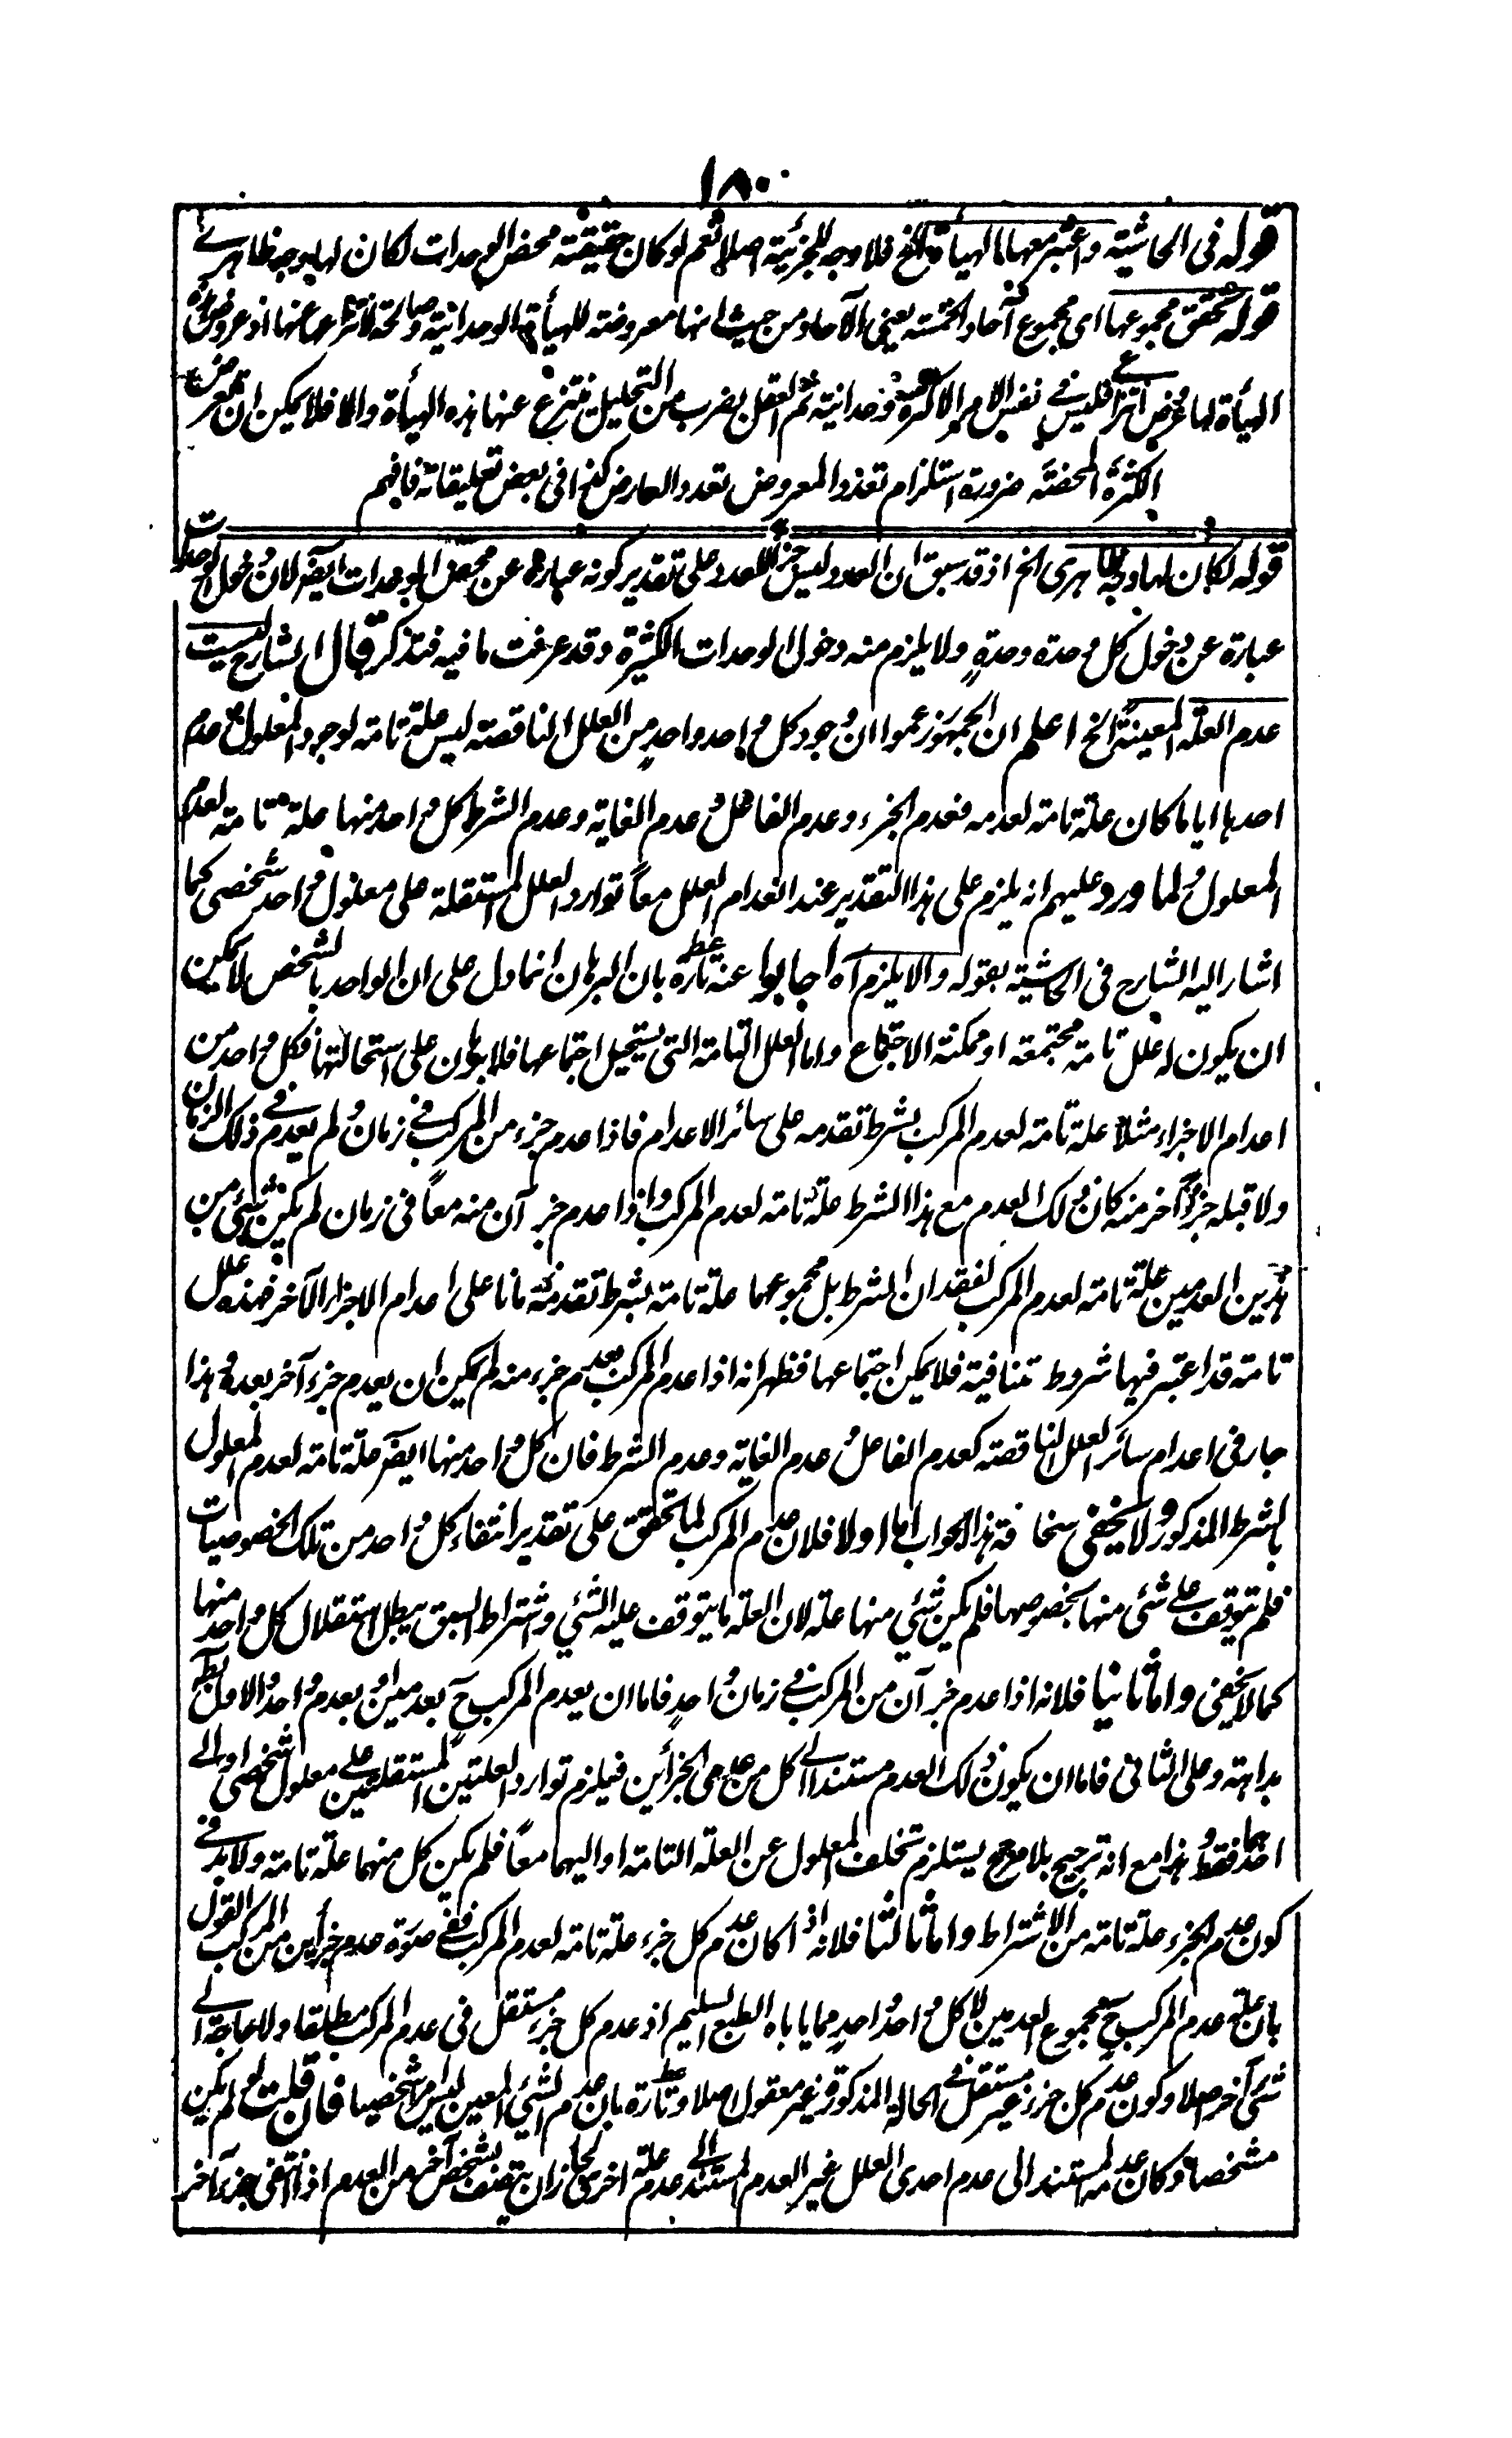 ١٨٠
قوله فى الحاشية واعتبر معها الهيأة الخ فلا وجه للجزئية اصلا نعم لو كان حقيقته محض الوحدات لكان لها وجه ظاهرى
قوله تحقق مجموعها اى مجموع آحاد الخمسة يعنى الآحاد من حيث انها معروضة للهيأة الوحدانية وصالحة لانتزاعها عنها اذ عروض
الهيأة لها عروض انتزاعى فليس فى نفس الامر الا كثرة وحدانية ثم العقل بضرب من التحليل ينتزع عنها هذه الهيأة والا فلا يمكن ان تعرض
الكثرة المحضة ضرورة استلزام تعدد المعروض تعدد العارض كذا فى بعض تعليقاته فافهم
قوله لكان لها وجه ظاهرى الخ اذ قد سبق ان العدد ليس جزءا للعدد على تقدير كونه عبارة عن محض الوحدات ايضا لان دخول الوحدات
عبارة عن دخول كل وحدة وحدة ولا يلزم منه دخول الوحدات الكثيرة وقد عرفت ما فيه فتذكر قال الشارح ليست
عدم العلة المعينة الخ اعلم ان الجمهور زعموا ان وجود كل واحد واحد من العلل الناقصة ليس علة تامة لوجود المعلول مع عدم
احدها اياما كان علة تامة لعدمه فعدم الجزء وعدم الفاعل وعدم الغاية وعدم الشرط كل واحد منها علة تامة لعدم
المعلول ولما ورد عليهم انه يلزم على هذا التقدير عند انعدام العلل معاً توارد العلل المستقلة على معلول واحد شخصى كما
اشار اليه الشارح فى الحاشية بقوله والا يلزم اه اجابوا عنه تارة بان البرهان انما دل على ان الواحد بالشخص لا يمكن
ان يكون له علل تامة مجتمعة او ممكنة الاجتماع واما العلل التامة التى يستحيل اجتماعها فلا برهان على استحالتها فكل واحد من
اعدام الاجزاء مثلا علة تامة لعدم المركب بشرط تقدمه على سائر الاعدام فاذا عدم جزء من المركب فى زمان ولم يعدم فى ذلك الزمان
ولا قبله جزء آخر منه كان ذلك العدم مع هذا الشرط علة تامة لعدم المركب واذا عدم جزآن منه معاً فى زمان لم يكن شئ من
هذين العدمين علة تامة لعدم المركب لفقدان الشرط بل مجموعهما علة تامة بشرط تقدمه زمانا على اعدام الاجزاء الآخر فهذه علل
تامة قد اعتبر فيها شروط متنافية فلا يمكن اجتماعها فظهر انه اذا عدم المركب بعدم جزء منه لم يمكن ان يعدم جزء آخر بعده وهذا
جار فى اعدام سائر العلل الناقصة كعدم الفاعل وعدم الغاية وعدم الشرط فان كل واحد منها ايضا علة تامة لعدم المعلول
بالشرط المذكور ولا يخفى سخافة هذا الجواب اما اولا فلان عدم المركب لما تحقق على تقدير انتفاء كل واحد من تلك الخصوصيات
فلم يتوقف على شئ منها بخصوصها فلم يكن شئ منها علة لان العلة ما يتوقف عليه الشئ واشتراط السبق يبطل استقلال كل واحد منها
كما لا يخفى واما ثانيا فلانه اذا عدم جزآن من المركب فى زمان واحد فاما ان يعدم المركب ح بعدمين او بعدم واحد والاول بط
بداهة وعلى الثانى فاما ان يكون ذلك العدم مستندا الى كل من عدمى الجزأين فيلزم توارد العلتين المستقلتين على معلول شخصى او الى
احدهما فقط وهذا مع انه ترجيح بلا مرجح يستلزم تخلف المعلول عن العلة التامة او اليهما معاً فلم يكن كل منهما علة تامة ولا بد فى
كون عدم الجزء علة تامة من الاشتراط واما ثالثا فلانه اذا كان عدم كل جزء علة تامة لعدم المركب ففى صورة عدم جزأين من المركب القول
بان علة عدم المركب ح مجموع العدمين لا كل واحد واحد مما ياباه الطبع السليم اذ عدم كل جزء مستقل فى عدم المركب مطلقا ولا حاجة الى
شئ آخر اصلا وكون عدم كل جزء غير مستقل فى الحالة المذكورة غير معقول اصلا وتارة بان عدم الشئ المعين ليس شخصيا فان قلت لو لم يكن
مشخصا وكان عدمه المستند الى عدم احدى العلل غير العدم المستند الى عدم علة اخرى لجاز ان يتصف بشخص آخر من العدم اذا انتفى جزء آخر